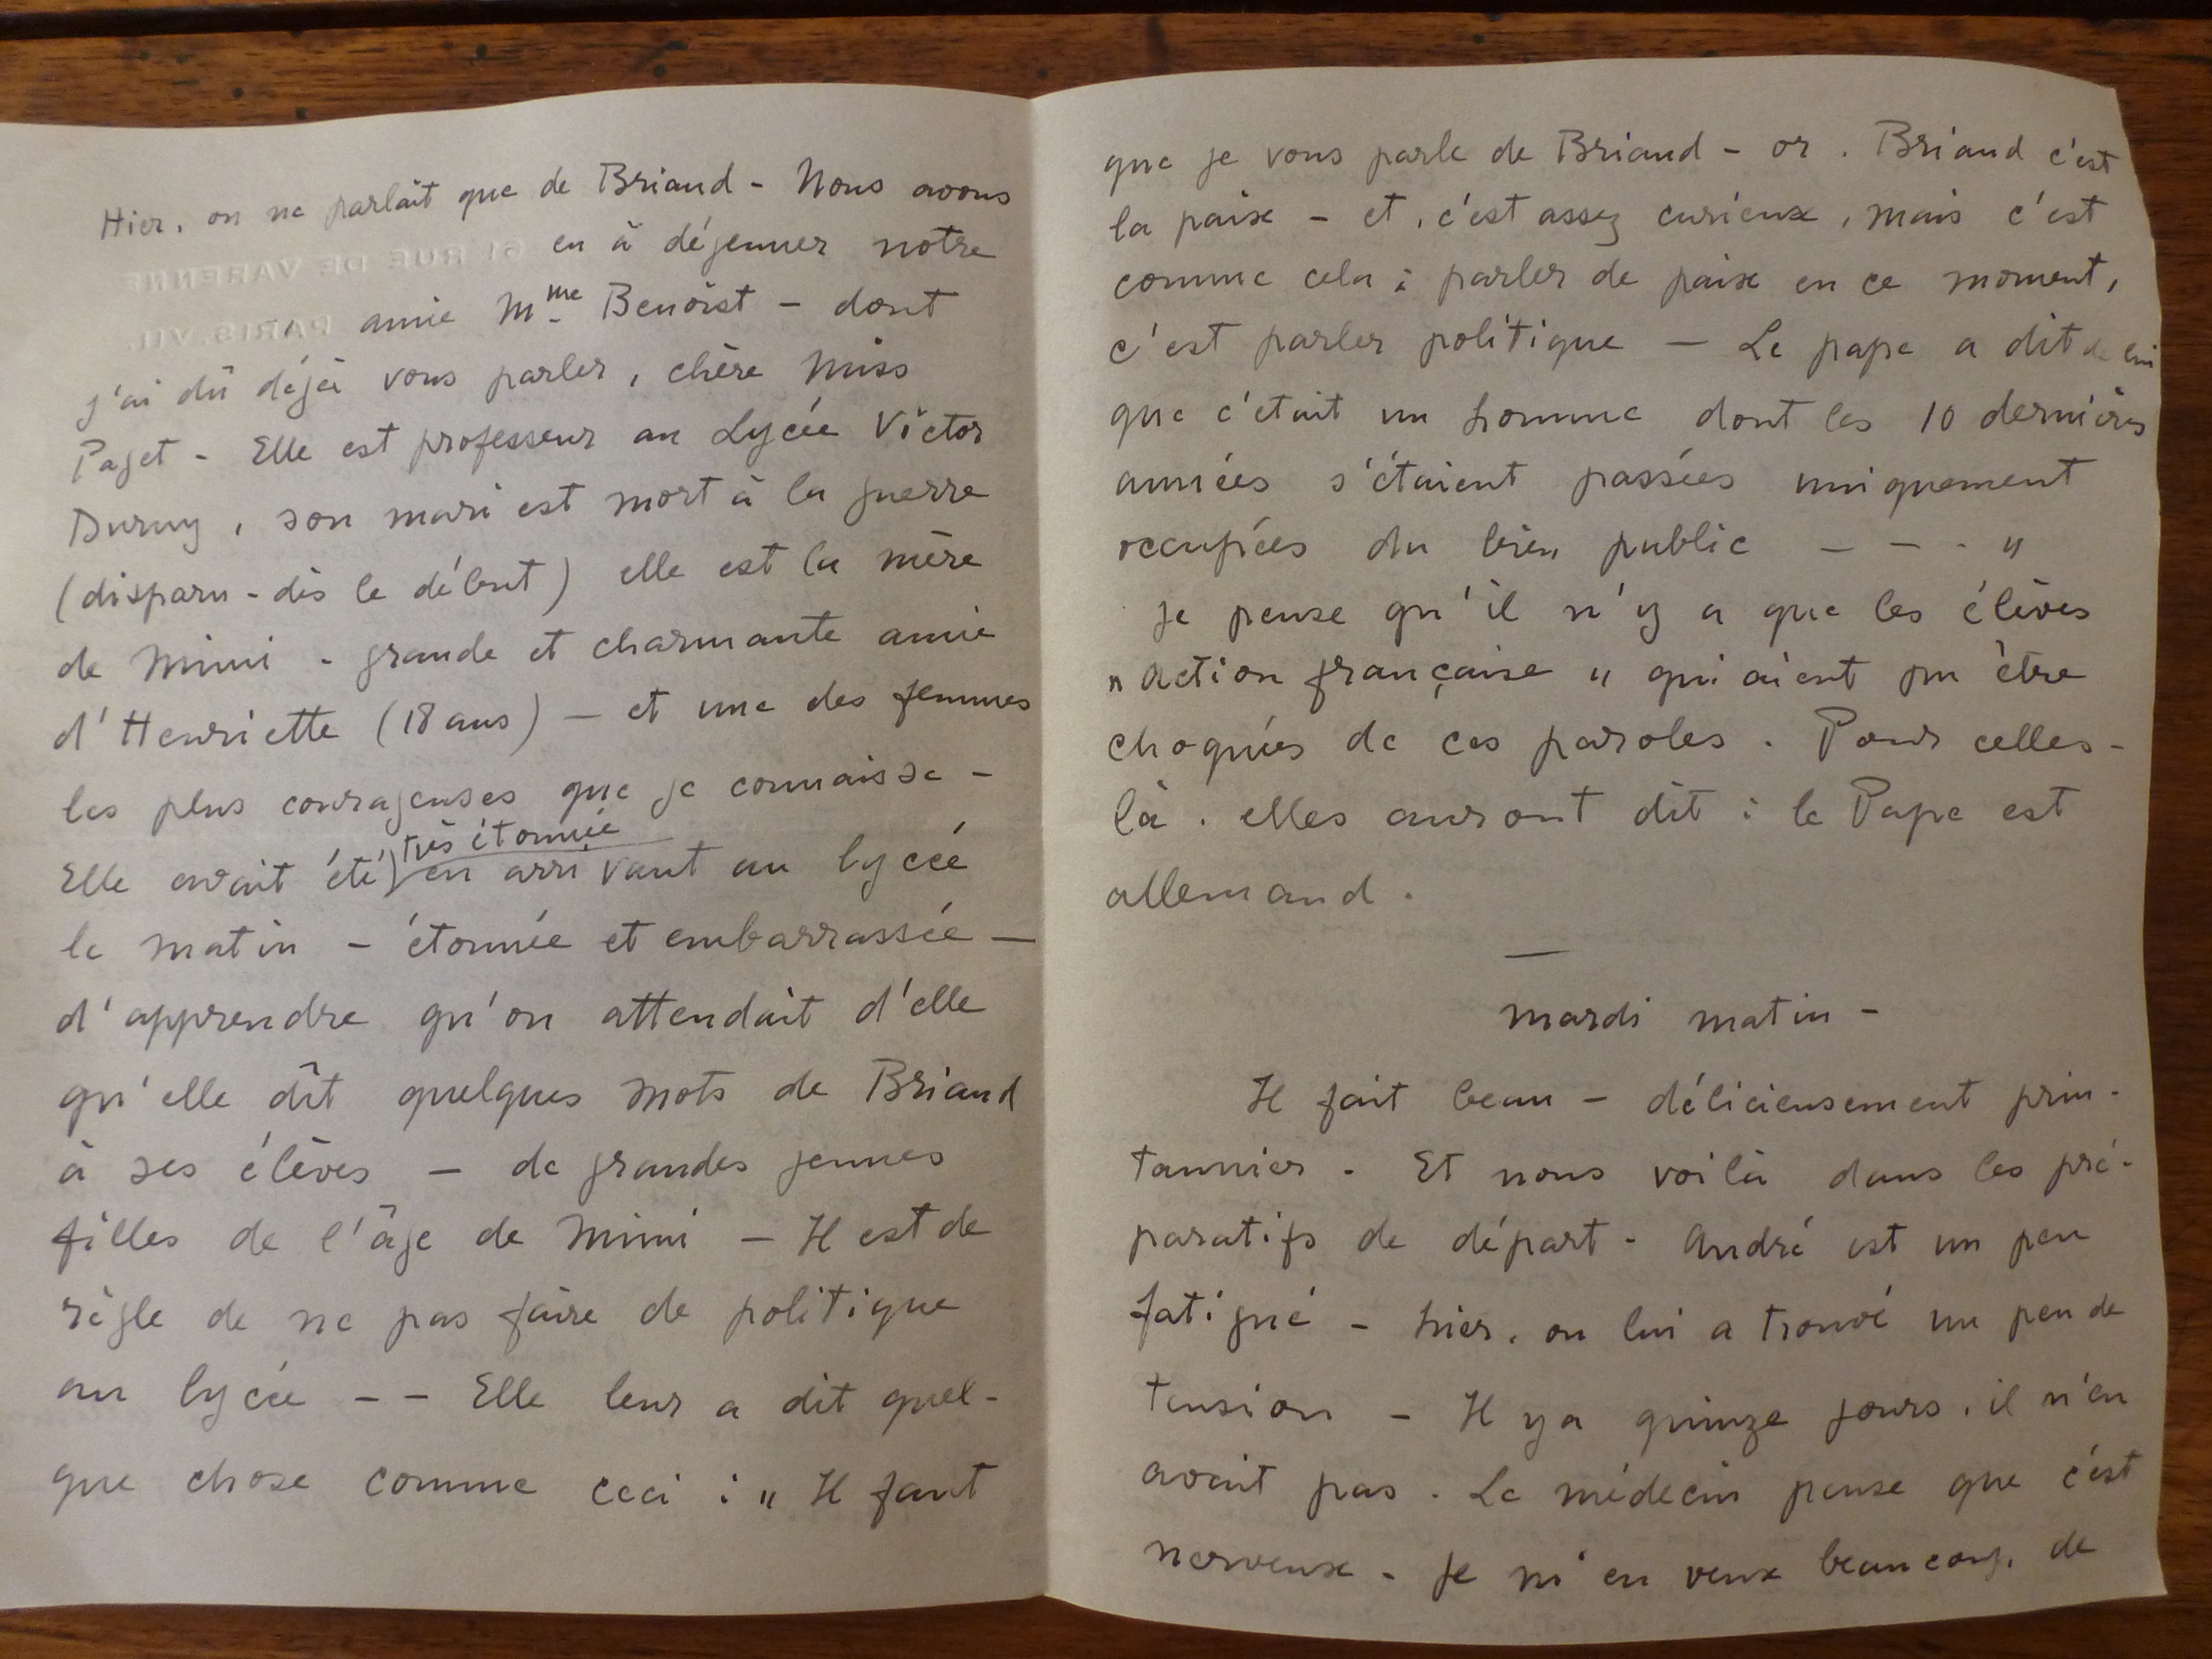 Hier, on ne parlait que de Briand - Nous avons
eu à déjeuner notre
61 RUE DE VARENNE
amie Mme Benoist - dont
PARIS. VII.
j'ai dû déjà vous parler, chère Miss
Paget - Elle est professeur au Lycée Victor
Duruy, son mari est mort à la guerre
(disparu - dès le début) elle est la mère
de Mimi - grande et charmante amie
d'Henriette (18 ans) - et une des femmes
les plus courageuses que je connaisse -
très étonnée
Elle avait été en arrivant au lycée
le matin - étonnée et embarrassée -
d'apprendre qu'on attendait d'elle
qu'elle dît quelques mots de Briand
à ses élèves - de grandes jeunes
filles de l'âge de Mimi - Il est de
règle de ne pas faire de politique
au lycée - - Elle leur a dit quel-
que chose comme ceci : " Il faut
que je vous parle de Briand - or. Briand c'est
la paix - et, c'est assez curieux, mais c'est
comme cela : parler de paix en ce moment,
c'est parler politique - Le pape a dit de lui
que c'était un homme dont les 10 dernières
années s'étaient passées uniquement
occupées du bien public - - - "
Je pense qu'il n'y a que les élèves
" Action française " qui aient pu être
choquées de ces paroles. Pour celles-
là. elles auront dit : le Pape est
allemand.
—
Mardi matin -
Il fait beau - délicieusement prin-
tannier. Et nous voilà dans les pré-
paratifs de départ - André est un peu
fatigué - hier, on lui a trouvé un peu de
tension - Il y a quinze jours, il n'en
avait pas. Le médecin pense que c'est
nerveux - Je m'en veux beaucoup, de